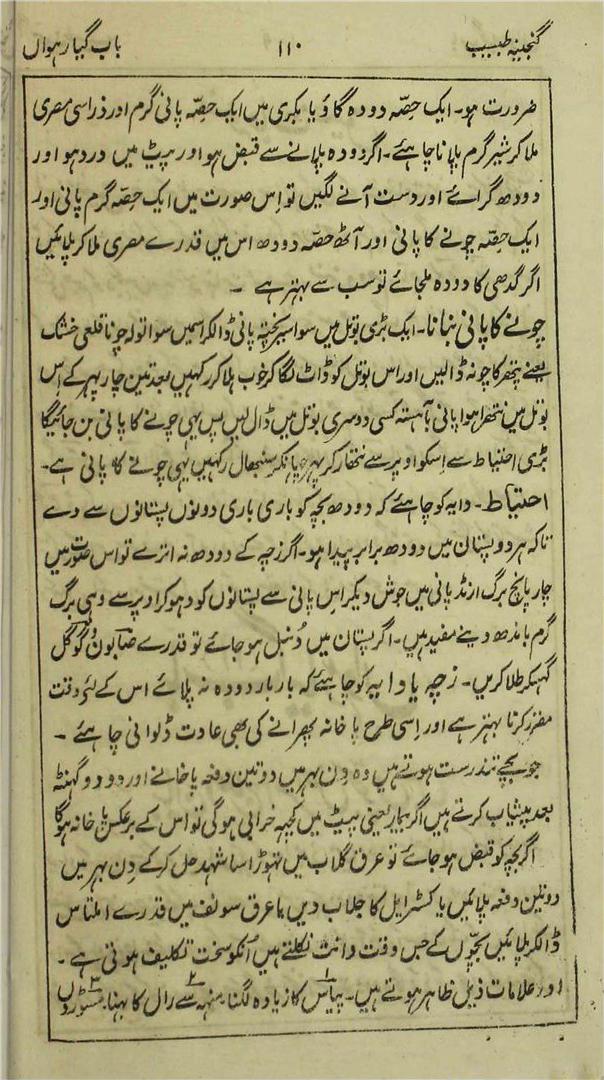 گنجینہ طبیب ۱۱۰ باب گیارہواں
ضرورت ہو۔ ایک حصّہ دودہ گاؤ یا بکری میں ایک حصّہ پانی گرم اور ذرا سی مصری
ملا کر شیر گرم پلانا چاہئے۔ اگر دودہ پلانے سے قبض ہو اور پیٹ میں درد ہو اور
دودھ گرائے اور دست آنے لگیں تو اِس صورت میں ایک حصّہ گرم پانی اور
ایک حصّہ چونے کا پانی اور آٹھ حصّہ دودھ اس میں قدرے مصری ملا کر پلائیں
اگر گدھی کا دودہ ملجائے تو سب سے بہتر ہے ۔
چونے کا پانی بنانا۔ ایک بڑی بوتل میں سوا سیر پختہ پانی ڈالکر اسمیں سوا تولہ چونا قلعی خشک
یعنے پتھر کا چونہ ڈالیں اور اس بوتل کو ڈاٹ لگا کر خوب ہلا کر رکہیں بعد تین چار پہر کے اِس
بوتل میں نتھرا ہوا پانی بآہستہ کسی دوسری بوتل میں ڈال لیں بس یہی چونے کا پانی بن جائیگا
بڑی احتیاط سے اِسکو اوپر سے نتھار کر پہر چہانکر سنبھال رکہیں یہی چونے کا پانی ہے۔
احتیاط۔ دایہ کو چاہئے کہ دودھ بچہ کو باری باری دونوں پستانوں سے دے
تاکہ ہر دو پستان میں دودھ برابر پیدا ہو۔ اگر زچہ کے دودھ نہ اترے تو اس صورت میں
چار پانچ برگ ارنڈ پانی میں جوش دیکر اس پانی سے پستانوں کو دہو کر اوپر سے وہی برگ
گرم باندھ دینے مفید ہیں۔ اگر پستان میں دُنبل ہو جائے تو قدرے صابون و گوگل
گہسکر طلا کریں۔ زچہ یا دایہ کو چاہئے کہ بار بار دودہ نہ پلائے اس کے لئے وقت
مقرر کرنا بہتر ہے اور اِسی طرح پاخانہ پھرانے کی بھی عادت ڈلوانی چاہئے ۔
جو بچے تندرست ہوتے ہیں وہ دِن بہر میں دو تین دفعہ پاخانے اور دو دو گہنٹہ
بعد پیشاب کرتے ہیں اگر بیمار یعنی پیٹ میں کچہہ خرابی ہوگی تو اس کے برعکس پاخانہ ہوگا
اگر بچہ کو قبض ہو جائے تو عرق گلاب میں تہوڑا سا شہد حل کر کے دِن بہر میں
دو تین دفعہ پلائیں یا کسٹرایل کا جلاب دیں یا عرق سونف میں قدرے املتاس
ڈالکر پلائیں بچّوں کے جس وقت دانت نکلتے ہیں اُنکو سخت تکلیف ہوتی ہے ۔
اور علامات ذیل ظاہر ہوتے ہیں۔ ۱ پیاس کا زیادہ لگنا۔ ۲ منہہ سے رال کا بہنا۔ ۳ مسوڑوں